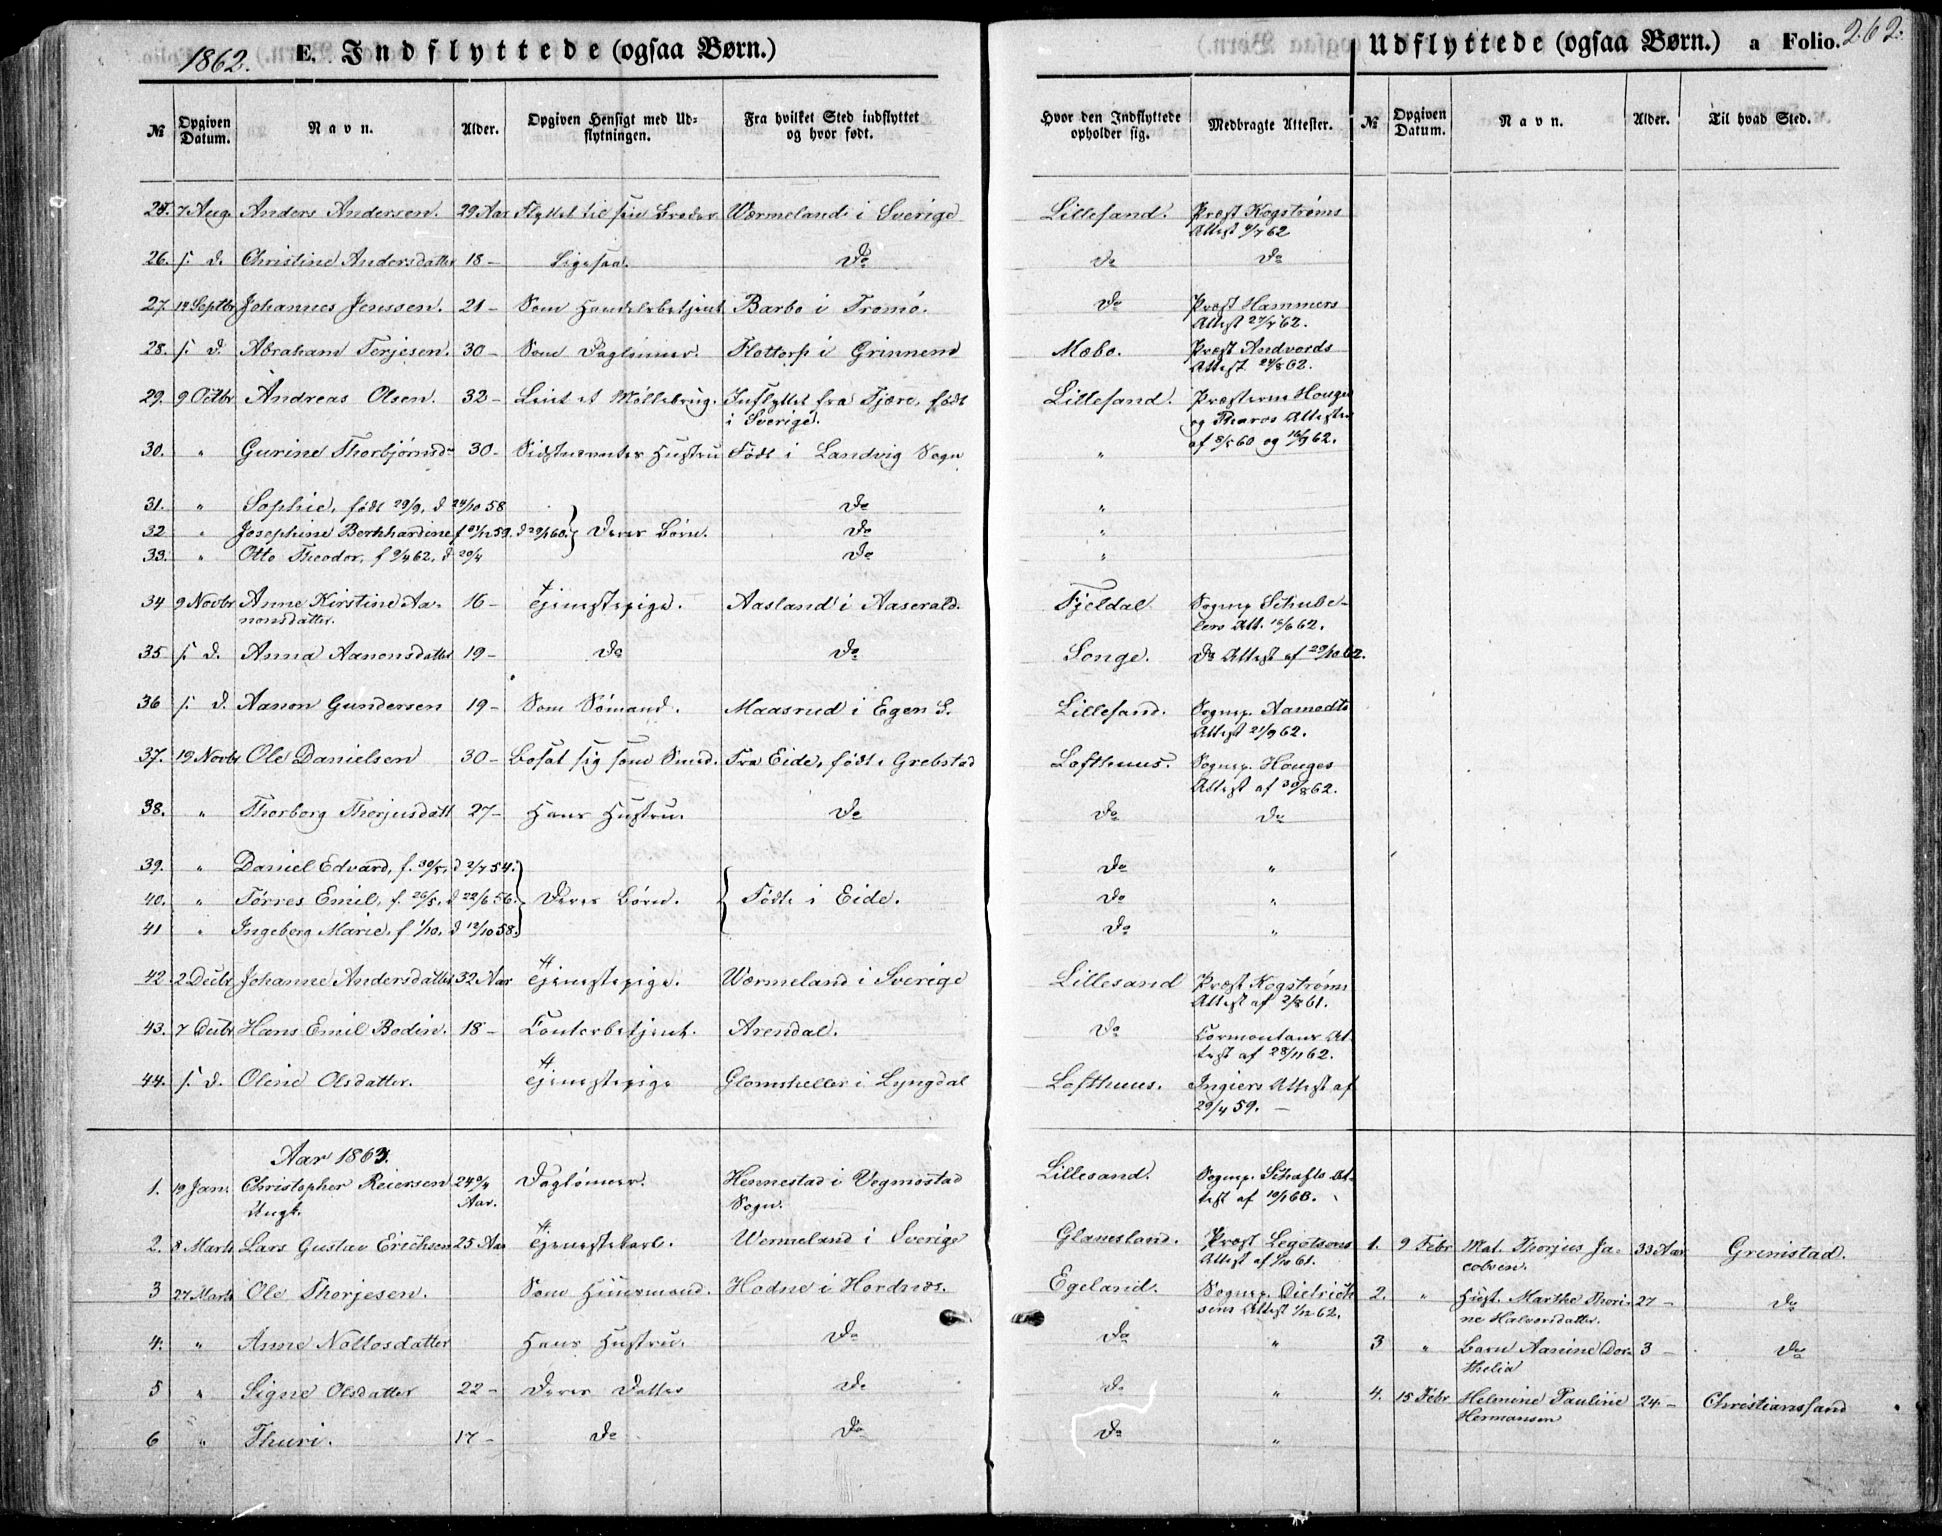 1862. E. Indflyttede (ogsaa Børn.)
Udflyttede (ogsaa Børn.) a Folio. 262.
№ Opgiven Datum. Navn. Alder. Opgiven Hensigt med Udflytningen. Fra hvilket Sted indflyttet og hvor født. Hvor den Indflyttede opholder sig. Medbragte Attester. № Opgiven Datum. Navn. Alder. Til hvad Sted.
25. 7 Aug. Anders Andersen. 29 Aar Flyttet til sin Broder Wærmeland i Sverige Lillesand. Præst Kogstrøms
Attest 4/7 62
26. s. d. Christine Andersdatter 18 - Ligesaa. do do do
27. 14 Septbr Johannes Jenssen. 21 - Som Handelsbetjent Barbo i Tromö. do Præst Hammers
Attest 27/8 62.
28. s. d. Abraham Terjesen. 30 - Som Daglønner. Flottorp i Grinnem Mæbo. Præst Andvords
Attest 24/8 62.
29. 9 Octbr Andreas Olsen. 32 - Leiet et Møllebrug. Indflyttet fra Fjære, født Lillesand. Præsterne Houges
i Sverige. og Attester
af 8/5 60 og 16/9 62.
30. " Gurine Thorbjørnsd. 30 - Sidstnævntes Hustru Født i Landvig Sogn "
31. " Sophie, født 29/9, d 24/10 58 do "
32 " Josephine Bernhardine f 21/12 59. d 29/1 60. } Deres Børn. do "
33. " Otto Theodor, f 9/4 62, d 20/4 do "
34 9 Novbr Anne Kirstine Aa- 16 - Tjenestepige. Aasland i Aaserald. Fjeldal Sognep. Schube-
nonsdatter. lers Att. 16/6 62.
35 s. d. Anna Aanonsdatter 19 - do do Songe. do Attest af 29/10 62.
36 s. d. Aanon Gundersen 19 - Som Sømand. Maasrud i Egen S. Lillesand. Sognep. Aamodts
Attest 21/9 62.
37. 19 Novbr Ole Danielsen 30 - Bosat sig som Smed. Fra Eide, født i Grebstad Lofthuus. Sognep. Houges
Attest af 30/8 62.
38. " Thorborg Therjusdatt 27 - Hans Hustru. do do do
39. " Daniel Edvard, f. 30/5, d 2/7 54. do "
40. " Tørres Emil, f. 26/5, d 22/6 56. } Deres Børn. { Født i Eide. do "
41 " Ingeborg Marie, f 1/10, d 12/10 58. do "
42 2 Decbr Johanne Andersdatter 32 Aar Tjenestepige. Wærmeland i Sverige Lillesand Præst Kogstrøms
Attest af 2/8 61.
43. 7 Decbr Hans Emil Bodin. 18 - Contorbetjent. Arendal. do Cormontans At-
test af 28/11 62.
44. s. d. Oline Olsdatter. Tjenestepige Glomsheller i Lyngdal Lofthuus. Ingiers Attest af
29/4 59. -
Aar 1863.
1. 19 Jan. Christopher Reiersen 24 3/4 Daglønner. Hennestad i Vegmostad Lillesand. Sognep. Schafts At-
Ungk. Aar. Sogn. test af 10/1 63.
2. 8 Marts Lars Gustav Erichsen 25 Aar Tjenestekarl. Wermeland i Sverige Glamsland. Præst
Attest af 61.
1. 9 Febr Mat. Thorjus Ja- 33 Aar Grimstad.
cobsen.
3 27 Marts Ole Thorjesen. Som Huusmand. Hodne i Hordnæs. Egeland. Sognep. Dietrich-
sens Attest 1/12 62.
2. " Hust. Marthe Thori- 27 - do
ne Halvorsdatter.
4. " Anne Nottosdatter Hans Hustru. do do "
3 " Barn Aanine Dor- 3 - do
thelia
5 " Signe Olsdatter 22 - Deres Datter do do "
4. 15 Febr Helmine Pauline 24 - Christianssand
Hermansen
6 " Thuri. 17 - do do do "